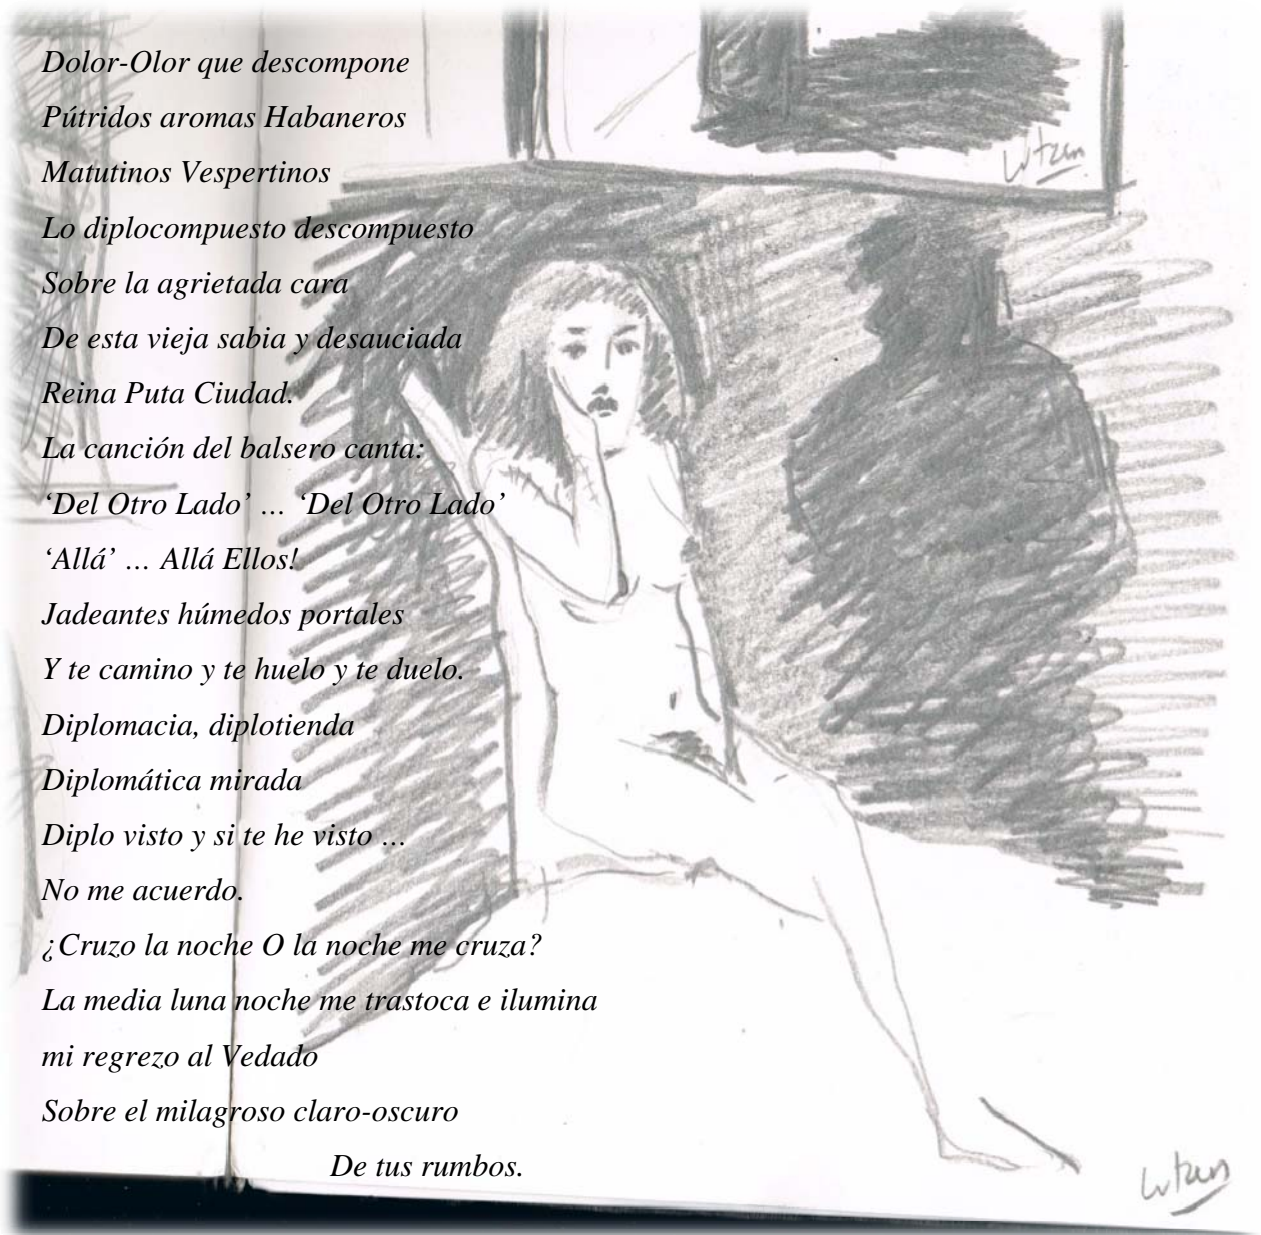 Dolor-Olor que descompone
Pútridos aromas Habaneros
Matutinos Vespertinos
Lo diplocompuesto descompuesto
Sobre la agrietada cara
De esta vieja sabia y desauciada
Reina Puta Ciudad.
La canción del balsero canta:
‘Del Otro Lado’ … ‘Del Otro Lado’
‘Allá’ … Allá Ellos!
Jadeantes húmedos portales
Y te camino y te huelo y te duelo.
Diplomacia, diplotienda
Diplomática mirada
Diplo visto y si te he visto …
No me acuerdo.
¿Cruzo la noche O la noche me cruza?
La media luna noche me trastoca e ilumina
mi regrezo al Vedado
Sobre el milagroso claro-oscuro
De tus rumbos.